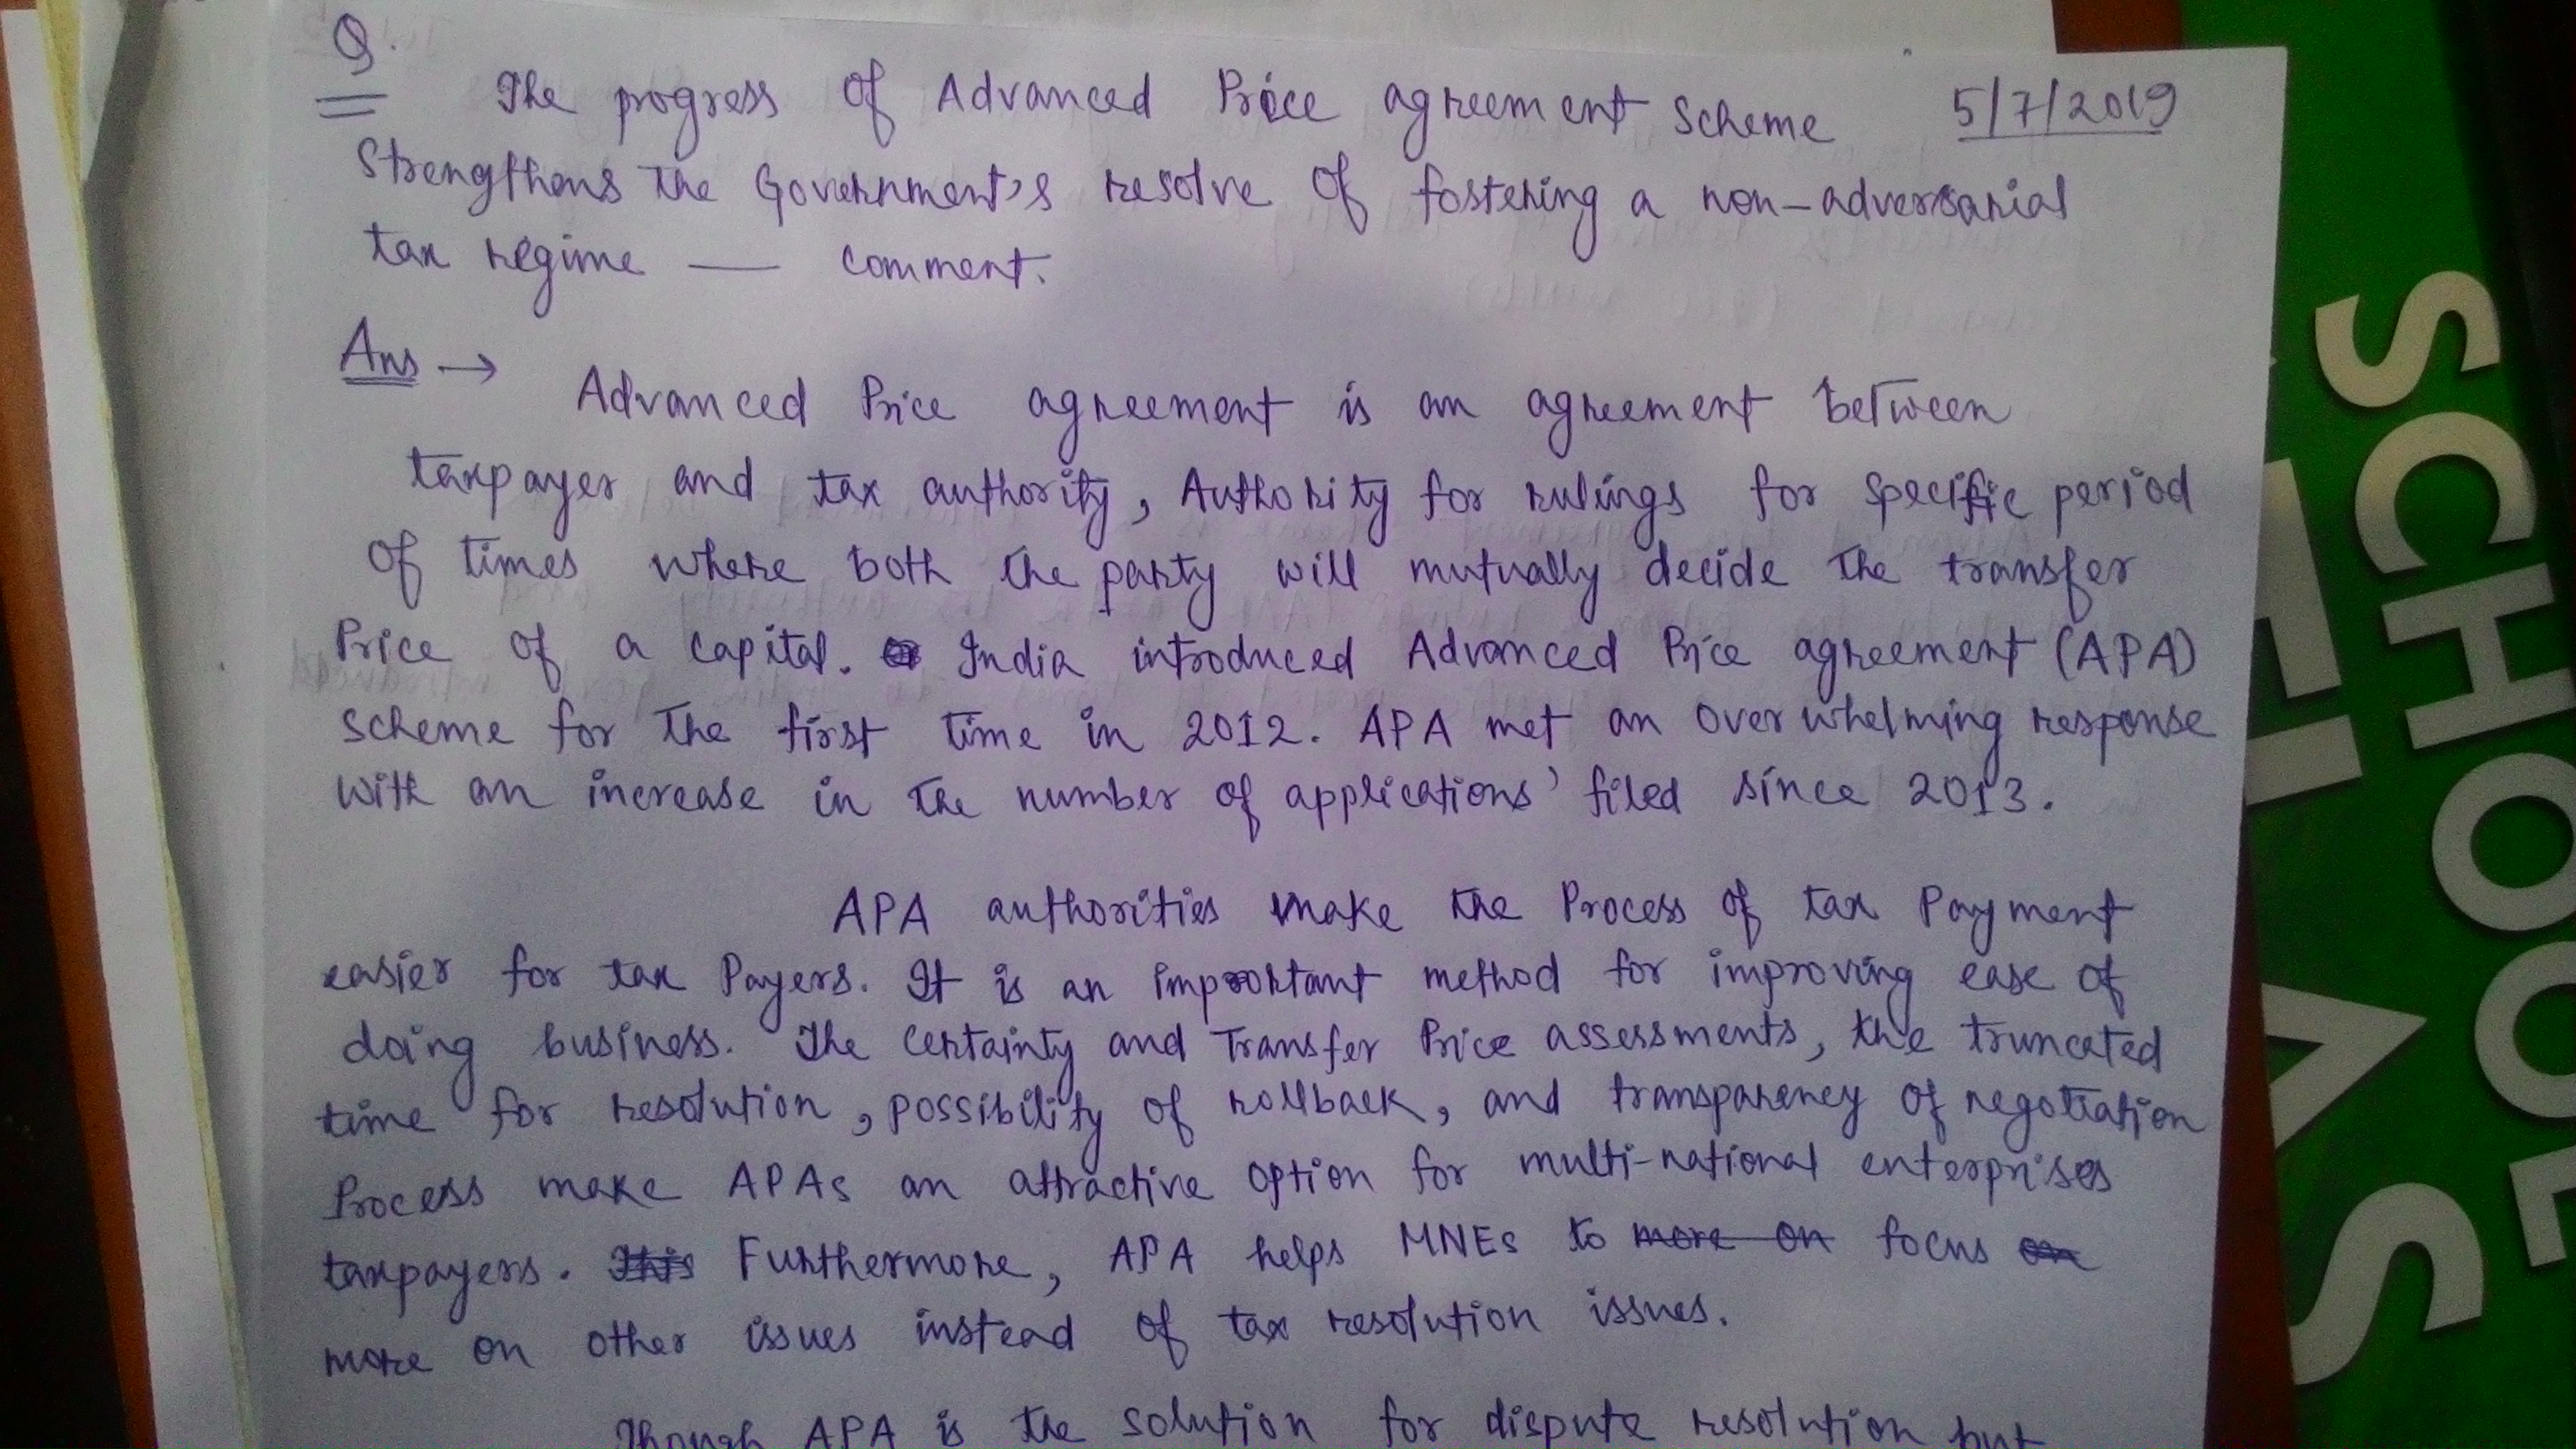 Q.
The progress of Advanced Price agreement scheme 5/7/2019
Strengthens the Government's resolve of fostering a non-adversarial
tax regime — comment.
Ans → Advanced Price agreement is an agreement between
taxpayer and tax authority, Authority for rulings for specific period
of times where both the party will mutually decide the transfer
Price of a capital. India introduced Advanced Price agreement (APA)
scheme for the first time in 2012. APA met an overwhelming response
with an increase in the number of applications' filed since 2013.
APA authorities make the Process of tax Payment
easier for tax Payers. It is an important method for improving ease of
doing business. The certainty and Transfer Price assessments, the truncated
time for resolution, possibility of rollback, and transparency of negotiation
Process make APAs an attractive option for multi-national enterprises
taxpayers. This Furthermore, APA helps MNEs to more on focus on
more on other issues instead of tax resolution issues.
Though APA is the solution for dispute resolution but
SCHOOL
AS